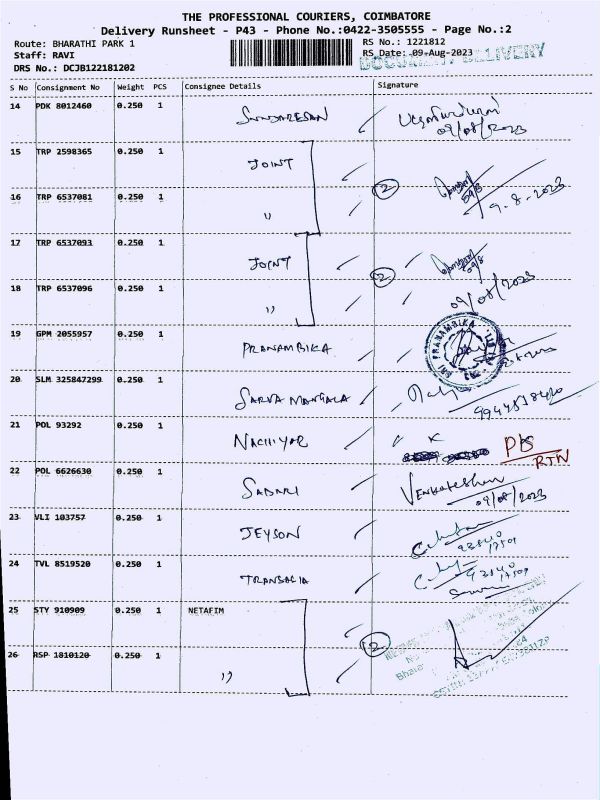 THE PROFESSIONAL COURIERS, COIMBATORE
Delivery Runsheet - P43 - Phone No.:0422-3505555 - Page No.:2
Route: BHARATHI PARK 1 RS No.: 1221812
Staff: RAVI RS Date: 09-Aug-2023
DOCUMENT DELIVERY
DRS No.: DCJB122181202
S No Consignment No Weight PCS Consignee Details Signature
14 PDK 8012460 0.250 1 SUNDARESAN
09/08/2023
15 TRP 2598365 0.250 1 JOINT
16 TRP 6537081 0.250 1 " 2 9-8-2023
17 TRP 6537093 0.250 1 JOINT 2
18 TRP 6537096 0.250 1 " 09/08/2023
19 GPM 2055957 0.250 1 PRANAMBIKA
SRI PRANAMBIKA
20 SLM 325847299 0.250 1 SARVA MANGALA
21 POL 93292 0.250 1 NACHIYAR
RTN
22 POL 6626630 0.250 1 SABARI Venkateshan
09/08/2023
23 VLI 103757 0.250 1 JEYSON
24 TVL 8519520 0.250 1
25 STY 910909 0.250 1 NETAFIM
2
26 RSP 1810120 0.250 1 "